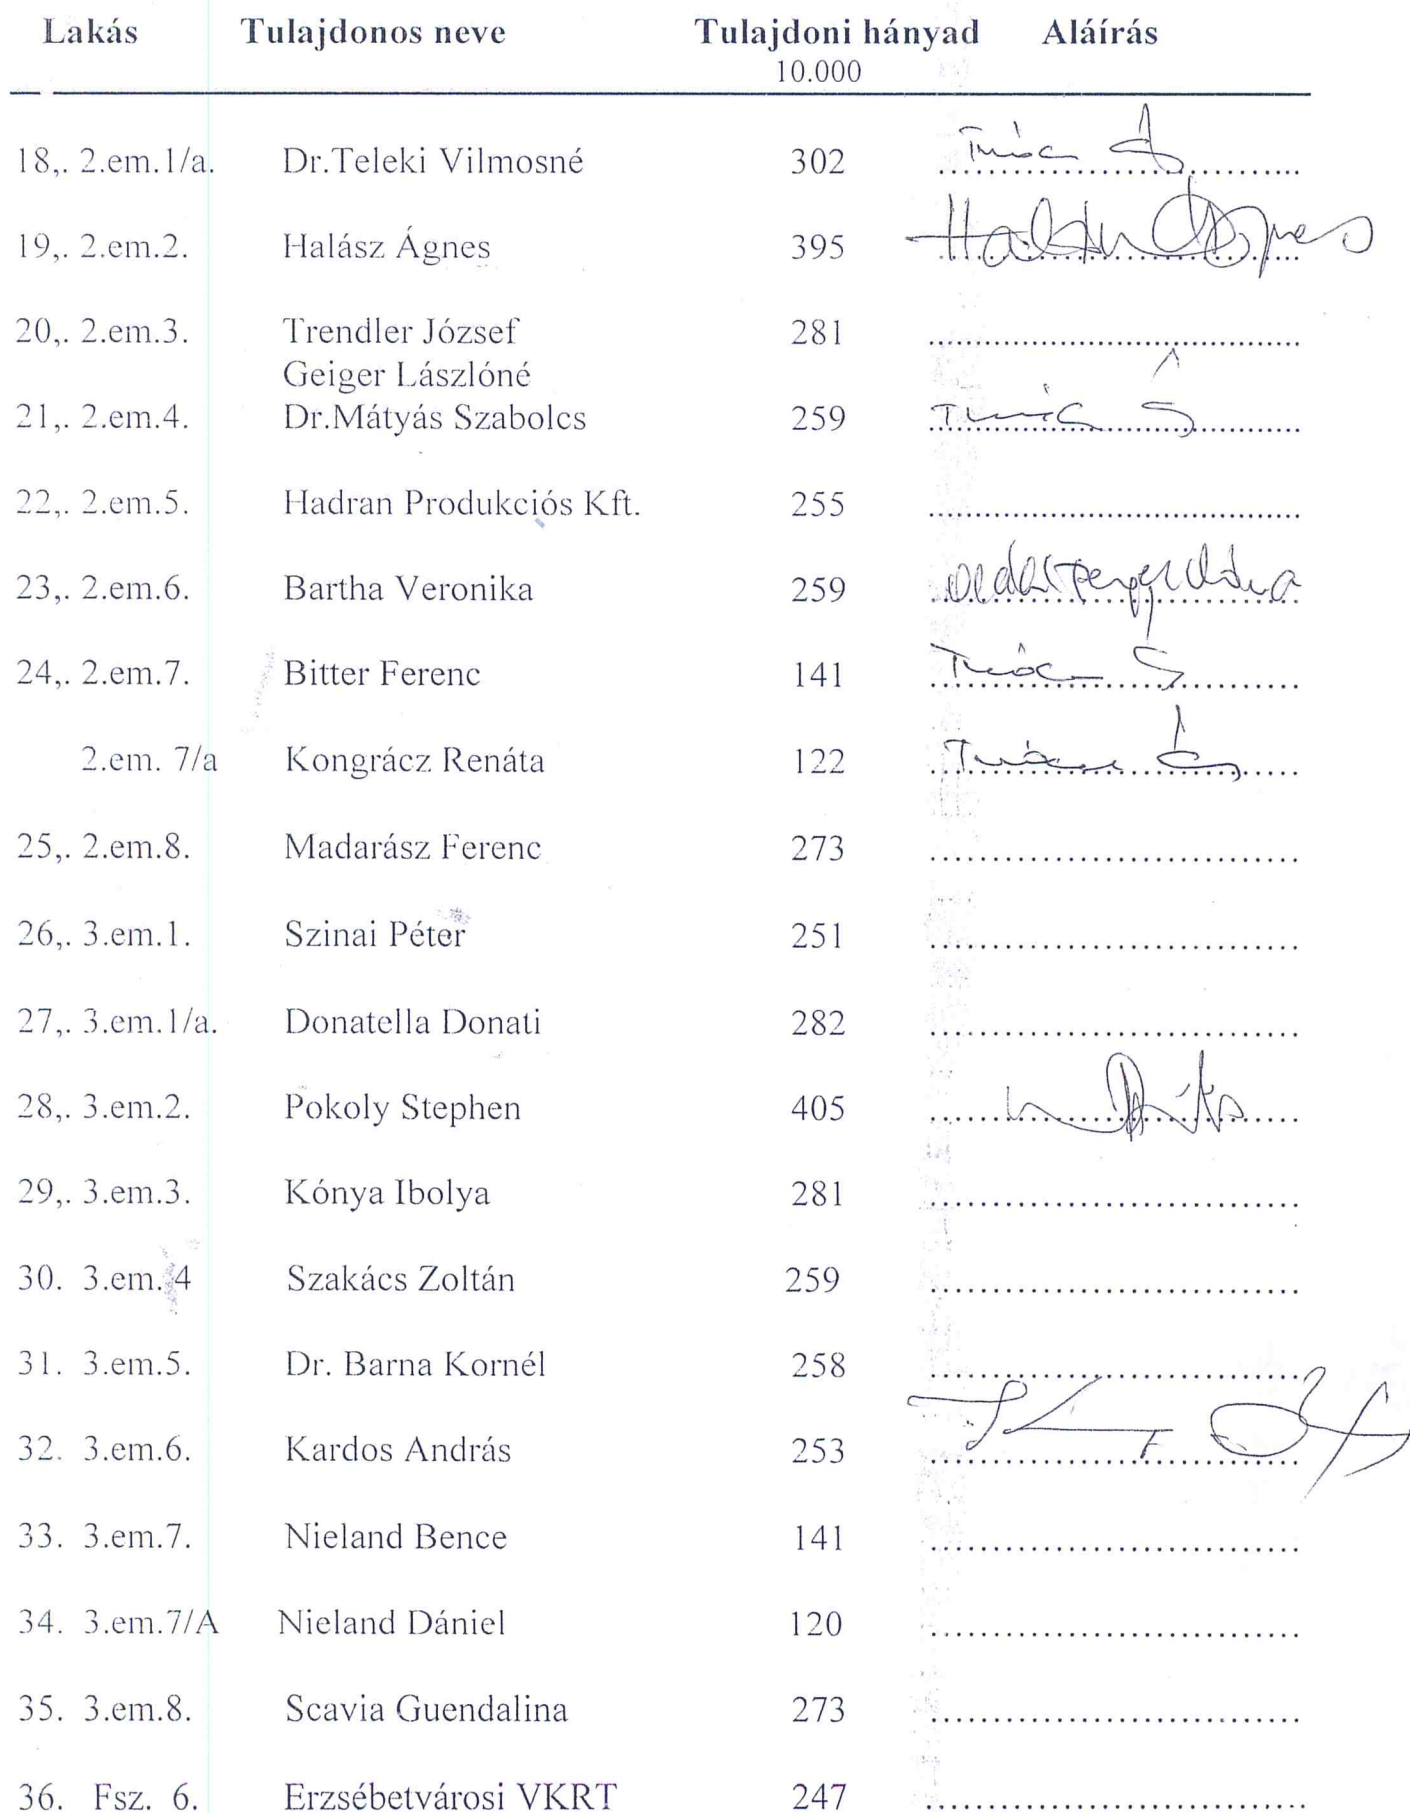 Lakás Tulajdonos neve Tulajdoni hányad Aláírás
10.000
18,. 2.em.1/a. Dr.Teleki Vilmosné 302
19,. 2.em.2. Halász Ágnes 395 Halász Ágnes
20,. 2.em.3. Trendler József 281
Geiger Lászlóné
21,. 2.em.4. Dr.Mátyás Szabolcs 259
22,. 2.em.5. Hadran Produkciós Kft. 255
23,. 2.em.6. Bartha Veronika 259
24,. 2.em.7. Bitter Ferenc 141
2.em. 7/a Kongrácz Renáta 122
25,. 2.em.8. Madarász Ferenc 273
26,. 3.em.1. Szinai Péter 251
27,. 3.em.1/a. Donatella Donati 282
28,. 3.em.2. Pokoly Stephen 405
29,. 3.em.3. Kónya Ibolya 281
30. 3.em.4 Szakács Zoltán 259
31. 3.em.5. Dr. Barna Kornél 258
32. 3.em.6. Kardos András 253
33. 3.em.7. Nieland Bence 141
34. 3.em.7/A Nieland Dániel 120
35. 3.em.8. Scavia Guendalina 273
36. Fsz. 6. Erzsébetvárosi VKRT 247